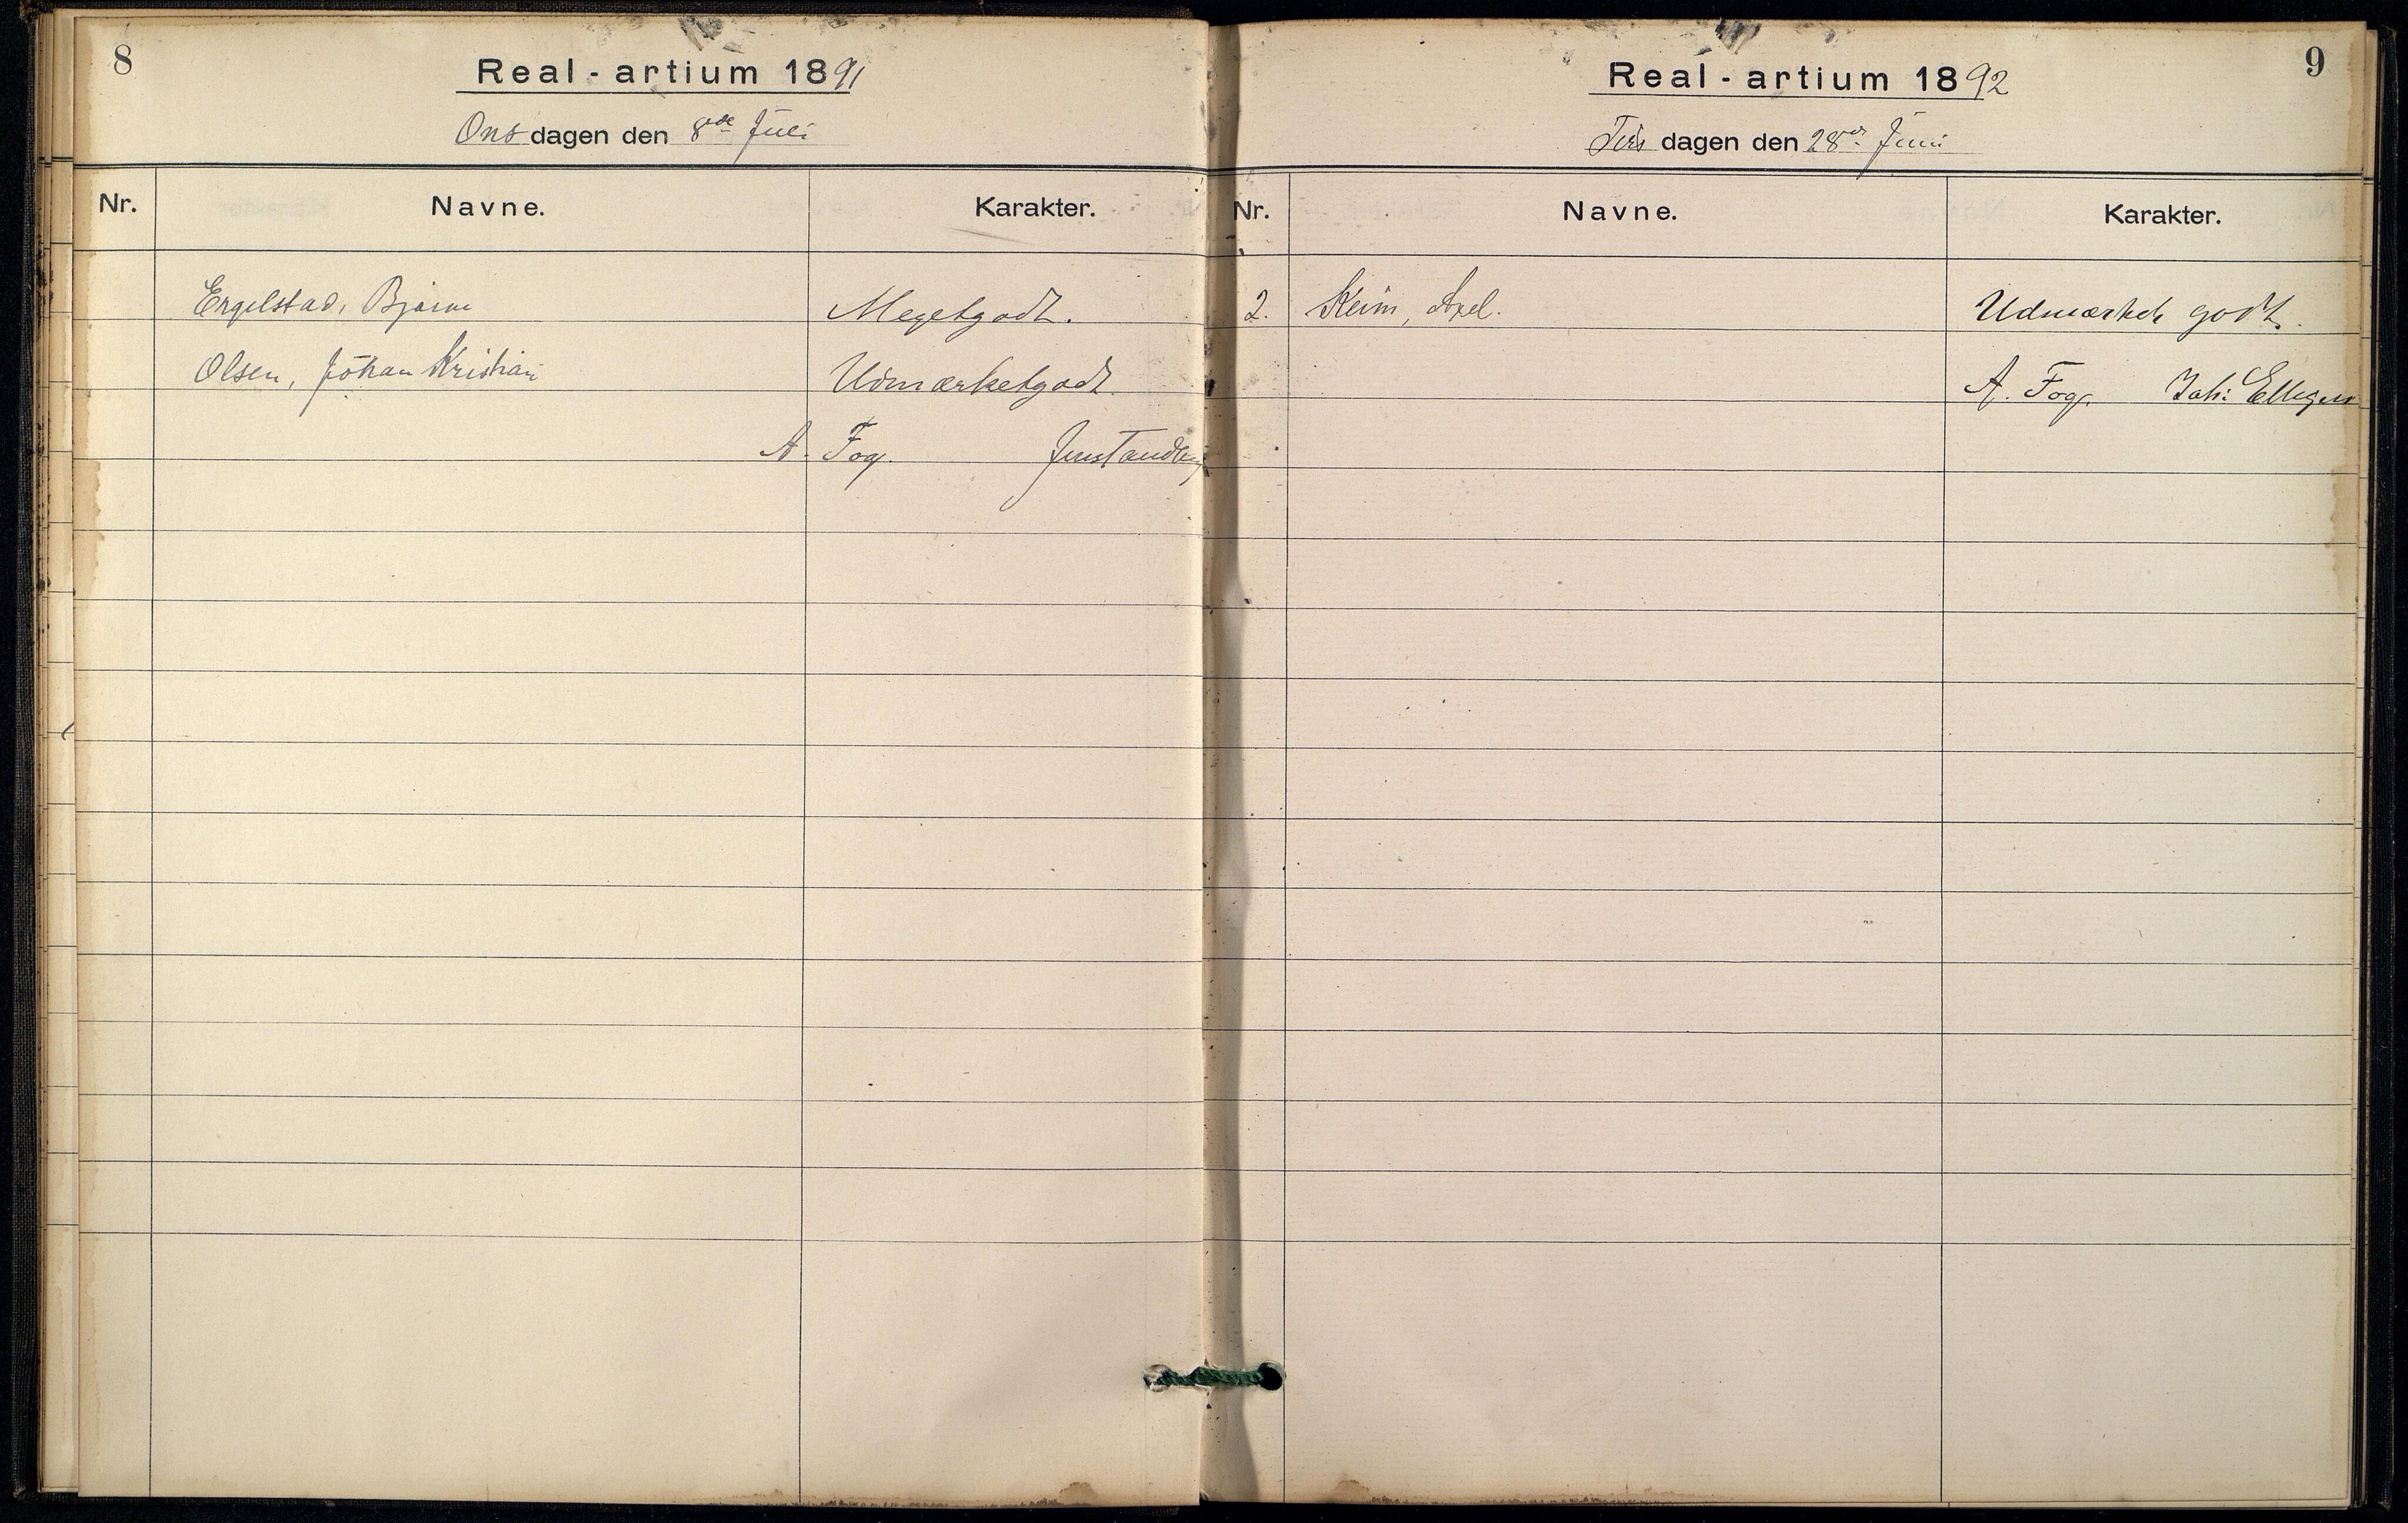 8
Real-artium 1891
Onsdagen den 8de Juli
Nr. Navne. Karakter.
Engelstad, Bjarne Megetgodt.
Olsen, Johan Kristian Udmærketgodt.
A. Fog.
9
Real-artium 1892
Tirsdagen den 28de Juni
Nr. Navne. Karakter.
2. Keim, Axel. Udmærket godt.
A. Fog. Joh: Ellegers